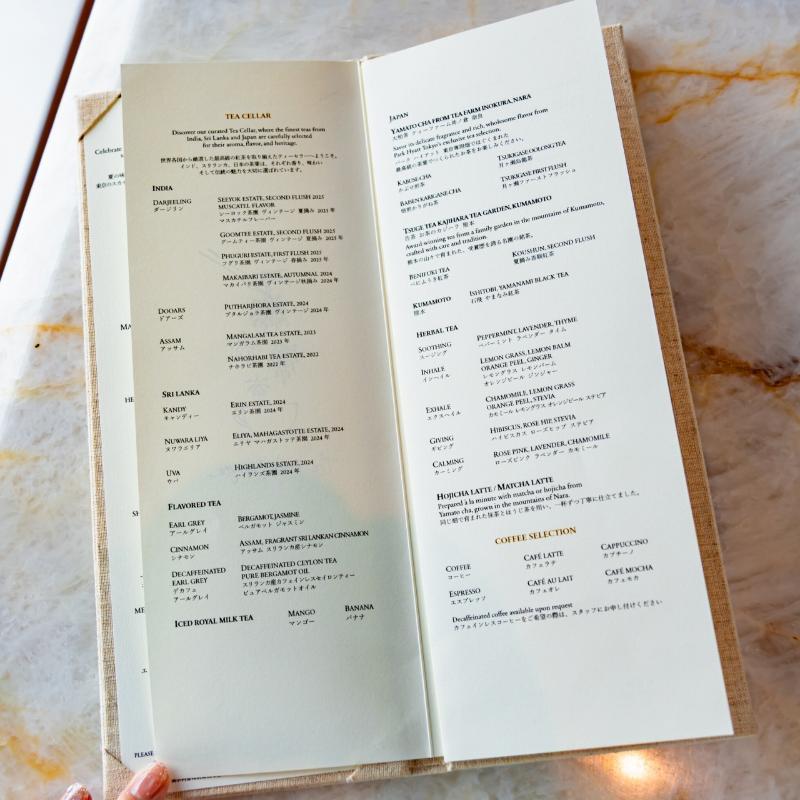 Celebrate
夏の味
東京のスカ
MA
HE
SH
ME
PLEASE
TEA CELLAR
Discover our curated Tea Cellar, where the finest teas from
India, Sri Lanka and Japan are carefully selected
for their aroma, flavor, and heritage.
世界各国から厳選した最高級の紅茶を取り揃えたティーセラーへようこそ。
インド、スリランカ、日本の茶葉は、それぞれ香り、味わい
そして伝統の魅力を大切に選ばれています。
INDIA
DARJEELING
ダージリン
SEEYOK ESTATE, SECOND FLUSH 2025
MUSCATEL FLAVOR
シーヨック茶園 ヴィンテージ 夏摘み 2025 年
マスカテルフレーバー
GOOMTEE ESTATE, SECOND FLUSH 2025
グームティー茶園 ヴィンテージ 夏摘み 2025 年
PHUGURI ESTATE, FIRST FLUSH 2025
フグリ茶園 ヴィンテージ 春摘み 2025 年
MAKAIBARI ESTATE, AUTUMNAL 2024
マカイバリ茶園 ヴィンテージ秋摘み 2024 年
DOOARS
ドアーズ
PUTHARJHORA ESTATE, 2024
プタルジョラ茶園 ヴィンテージ 2024 年
ASSAM
アッサム
MANGALAM TEA ESTATE, 2023
マンガラム茶園 2023 年
NAHORHABI TEA ESTATE, 2022
ナホラビ茶園 2022 年
SRI LANKA
KANDY
キャンディー
ERIN ESTATE, 2024
エリン茶園 2024 年
NUWARA LIYA
ヌワラエリア
ELIYA, MAHAGASTOTTE ESTATE, 2024
エリヤ マハガストッテ茶園 2024 年
UVA
ウバ
HIGHLANDS ESTATE, 2024
ハイランズ茶園 2024 年
FLAVORED TEA
EARL GREY
アールグレイ
BERGAMOT, JASMINE
ベルガモット ジャスミン
CINNAMON
シナモン
ASSAM, FRAGRANT SRI LANKAN CINNAMON
アッサム スリランカ産シナモン
DECAFFEINATED
EARL GREY
デカフェ
アールグレイ
DECAFFEINATED CEYLON TEA
PURE BERGAMOT OIL
スリランカ産カフェインレスセイロンティー
ピュアベルガモットオイル
ICED ROYAL MILK TEA
MANGO
マンゴー
BANANA
バナナ
JAPAN
YAMATO CHA FROM TEA FARM INOKURA, NARA
大和茶 ティーファーム井ノ倉 奈良
Savor its delicate fragrance and rich, wholesome flavor from
Park Hyatt Tokyo's exclusive tea selection.
パーク ハイアット 東京専用畑ではぐくまれた
最高級の茶葉でつくられたお茶をお楽しみください。
KABUSE CHA
かぶせ煎茶
TSUKIGASE OOLONG TEA
月ヶ瀬烏龍茶
BAISEN KARIGANE CHA
焙煎かりがね茶
TSUKIGASE FIRST FLUSH
月ヶ瀬ファーストフラッシュ
TSUGE TEA KAJIHARA TEA GARDEN, KUMAMOTO
告茶 お茶のカジハラ 熊本
Award winning tea from a family garden in the mountains of Kumamoto,
crafted with care and tradition.
熊本の山々で育まれた、受賞歴を誇る名園の銘茶。
BENIFUKI TEA
べにふうき紅茶
KOUSHUN, SECOND FLUSH
夏摘み香駿紅茶
KUMAMOTO
熊本
ISHITOBI, YAMANAMI BLACK TEA
石飛 やまなみ紅茶
HERBAL TEA
SOOTHING
スージング
PEPPERMINT, LAVENDER, THYME
ペパーミント ラベンダー タイム
INHALE
インヘイル
LEMON GRASS, LEMON BALM
ORANGE PEEL, GINGER
レモングラス レモンバーム
オレンジピール ジンジャー
EXHALE
エクスヘイル
CHAMOMILE, LEMON GRASS
ORANGE PEEL, STEVIA
カモミール レモングラス オレンジピール ステビア
GIVING
ギビング
HIBISCUS, ROSE HIP, STEVIA
ハイビスカス ローズヒップ ステビア
CALMING
カーミング
ROSE PINK, LAVENDER, CHAMOMILE
ローズピンク ラベンダー カモミール
HOJICHA LATTE / MATCHA LATTE
Prepared à la minute with matcha or hojicha from
Yamato cha, grown in the mountains of Nara.
同じ畑で育まれた抹茶とほうじ茶を用い、一杯ずつ丁寧に仕立てました。
COFFEE SELECTION
COFFEE
コーヒー
CAFÉ LATTE
カフェラテ
CAPPUCCINO
カプチーノ
ESPRESSO
エスプレッソ
CAFÉ AU LAIT
カフェオレ
CAFÉ MOCHA
カフェモカ
Decaffeinated coffee available upon request
カフェインレスコーヒーをご希望の際は、スタッフにお申し付けください